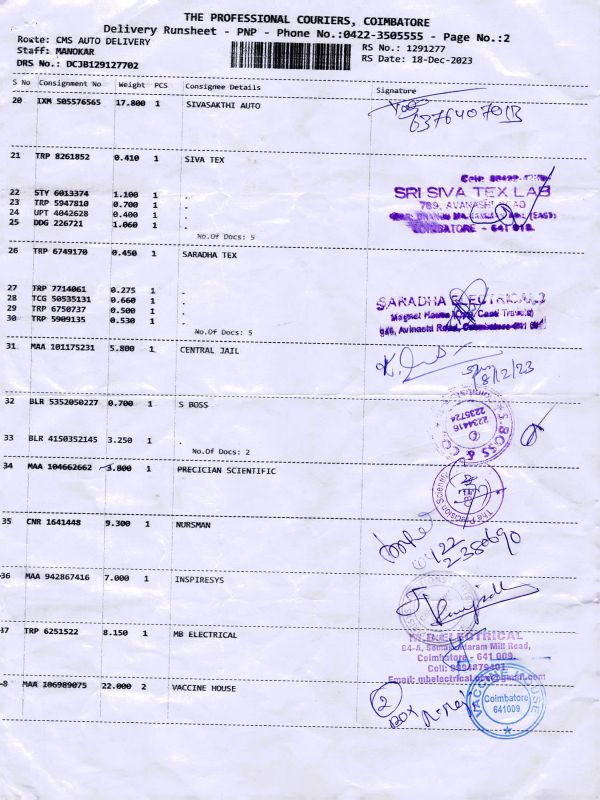 THE PROFESSIONAL COURIERS, COIMBATORE
Delivery Runsheet - PNP - Phone No.:0422-3505555 - Page No.:2
Route: CMS AUTO DELIVERY
Staff: MANOKAR
RS No.: 1291277
DRS No.: DCJB129127702
RS Date: 18-Dec-2023
S No Consignment No Weight PCS Consignee Details Signature
20 IXM 505576565 17.800 1 SIVASAKTHI AUTO
21 TRP 8261852 0.410 1 SIVA TEX
22 STY 6013374 1.100 1 .
SRI SIVA TEX LAB
23 TRP 5947810 0.700 1 .
789, AVANASHI ROAD
24 UPT 4042628 0.400 1 .
25 DDG 226721 1.060 1 .
COIMBATORE - 641 018.
No.Of Docs: 5
26 TRP 6749170 0.450 1 SARADHA TEX
27 TRP 7714061 0.275 1 .
28 TCG 50535131 0.660 1 .
SARADHA ELECTRICALS
29 TRP 6750737 0.500 1 .
30 TRP 5909135 0.530 1 .
No.Of Docs: 5
31 MAA 101175231 5.800 1 CENTRAL JAIL
18/12/23
32 BLR 5352050227 0.700 1 S BOSS
S.BOSS & CO
2234416
33 BLR 4150352145 3.250 1 .
No.Of Docs: 2
34 MAA 104662662 3.800 1 PRECICIAN SCIENTIFIC
The Precision Scientific
35 CNR 1641448 9.300 1 NURSMAN
0422
2380690
36 MAA 942867416 7.000 1 INSPIRESYS
37 TRP 6251522 8.150 1 MB ELECTRICAL
M.B.ELECTRICAL
Mill Road,
Coimbatore - 641 009.
8 MAA 106989075 22.000 2 VACCINE HOUSE
2
BOX
VACCINE HOUSE
Coimbatore
641009